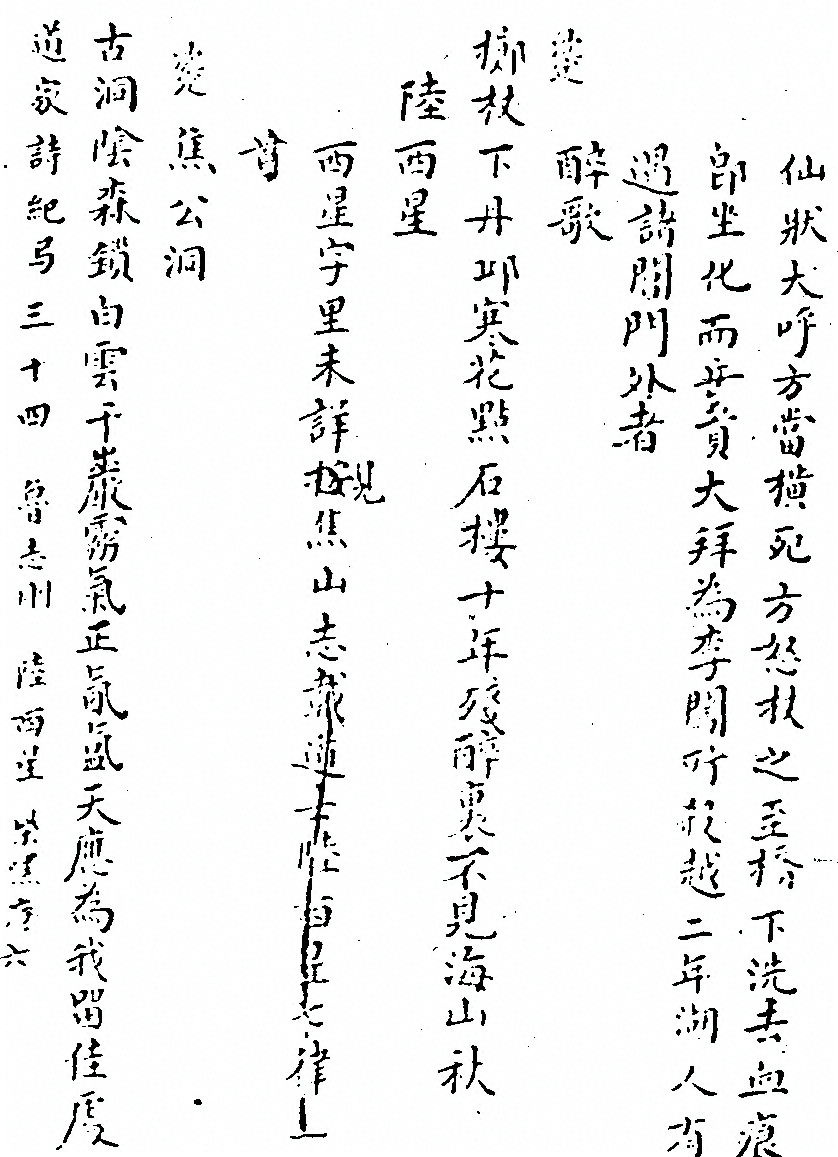 仙狀大呼方當橫死方怒杖之至橋下洗去血痕
郎坐化而無賁大拜為李闖所殺越二年湖人有
遇諸閶門外者
醉歌
擲杖下丹邱寒花點石樓十年殘醉裏不見海山秋
陸西星
西星字里未詳見焦山志載道士陸西星七律一
首
焦公洞
古洞陰森鎖白雲千巖霧氣正氤氳天應為我留佳處
道家詩紀弓三十四 魯志剛 陸西星 六